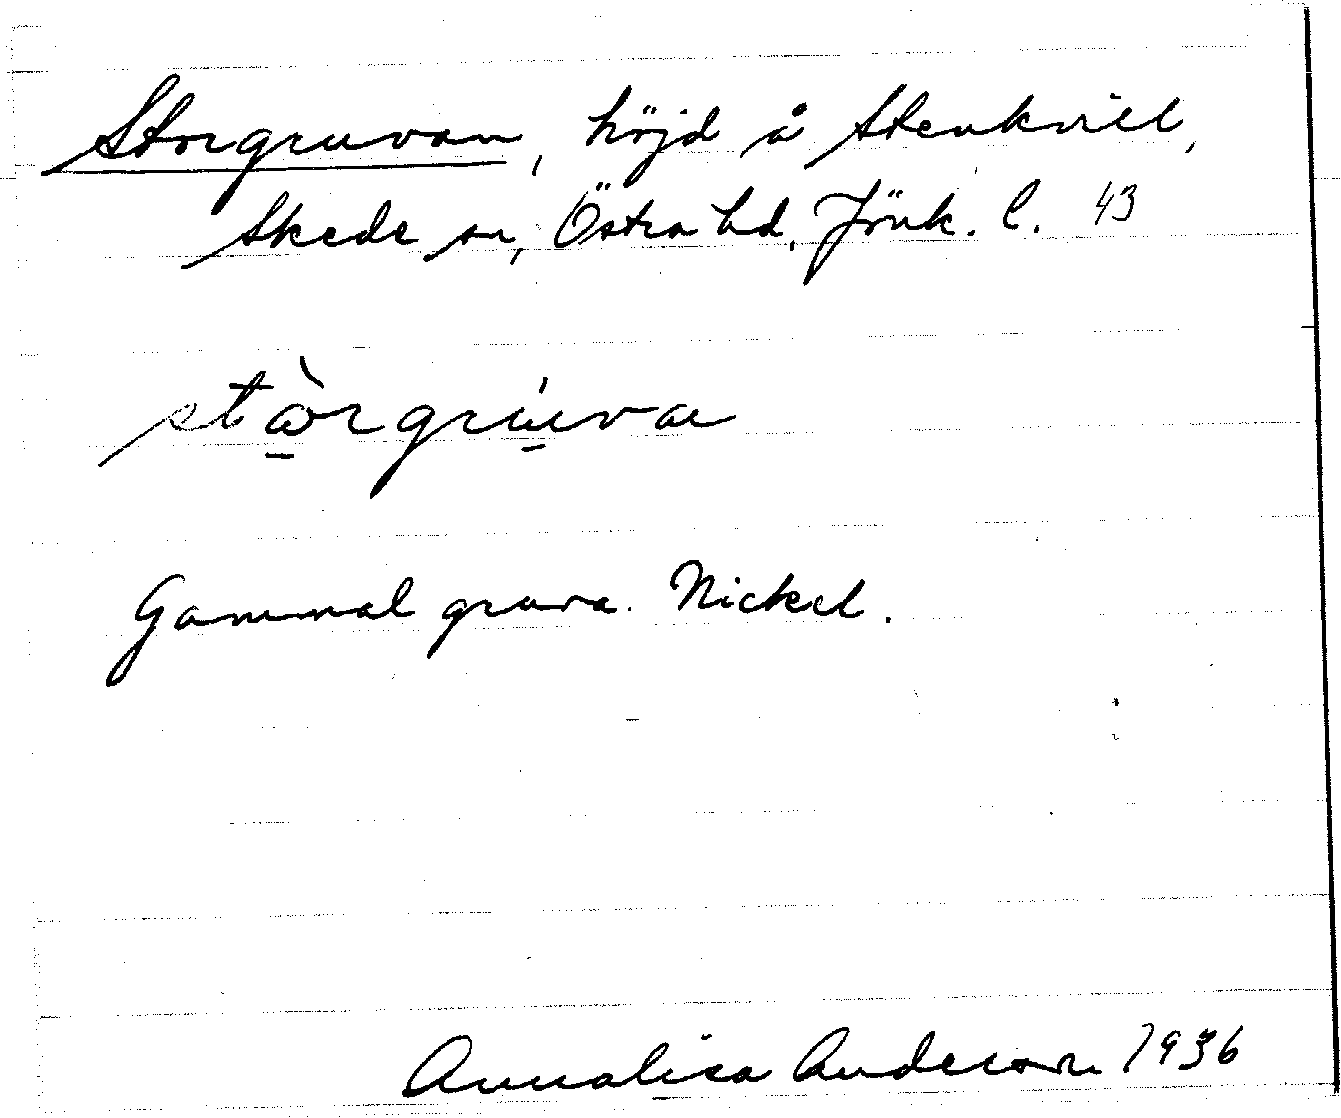 Storgruvan, höjd å Stenkvill,
Skede sn, Östra hd, Jönk. l. 43
stòrgru̇va
Gammal gruva. Nickel.
Annalisa Anderson 1936